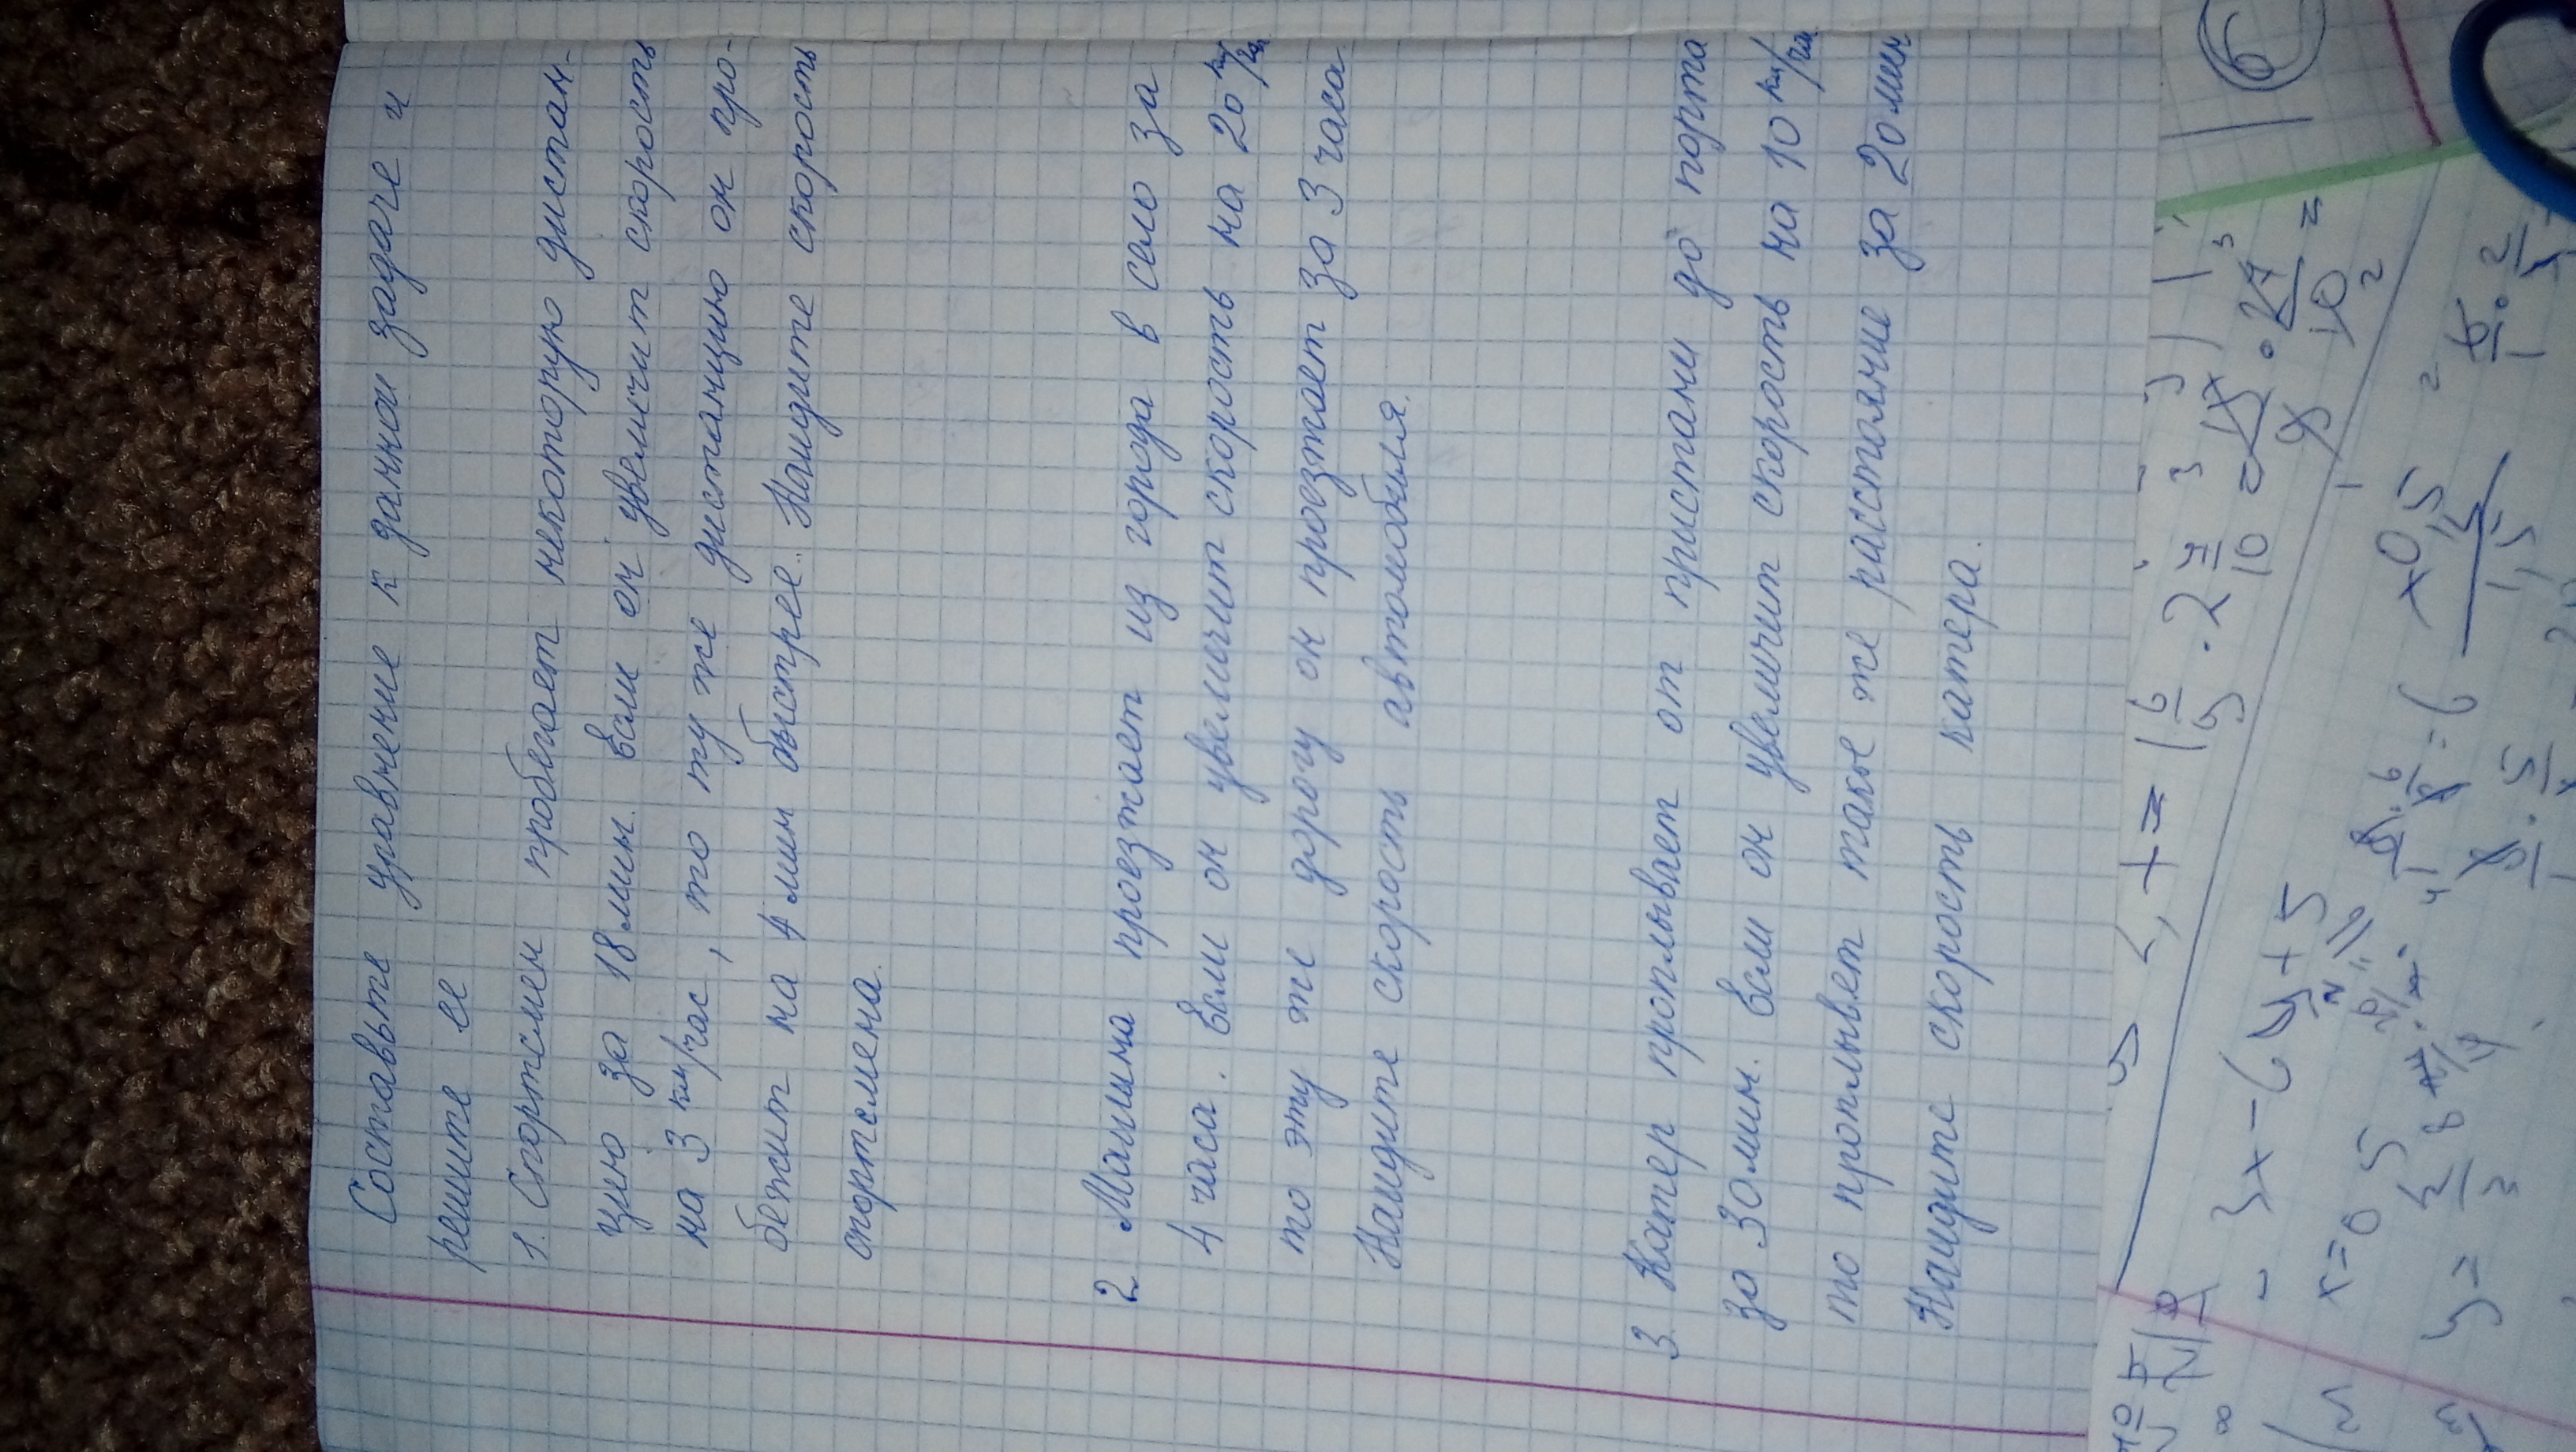 Составьте уравнение к данной задаче и
решите ее
1. Спортсмен пробегает некоторую дистан-
цию за 18 мин. Если он увеличит скорость
на 3 км/час, то ту же дистанцию он про-
бежит на 4 мин быстрее. Найдите скорость
спортсмена.
2. Машина проезжает из города в село за
4 часа. Если он увеличит скорость на 20 км/ча
то эту же дорогу он проезжает за 3 часа
Найдите скорость автомобиля.
3. Катер проплывает от пристани до порта
за 30 мин. Если он увеличит скорость на 10 км/ча
то проплывет такое же расстояние за 20 мин
Найдите скорость катера.
6
- 3x - 6y + 5
x = 0
y =